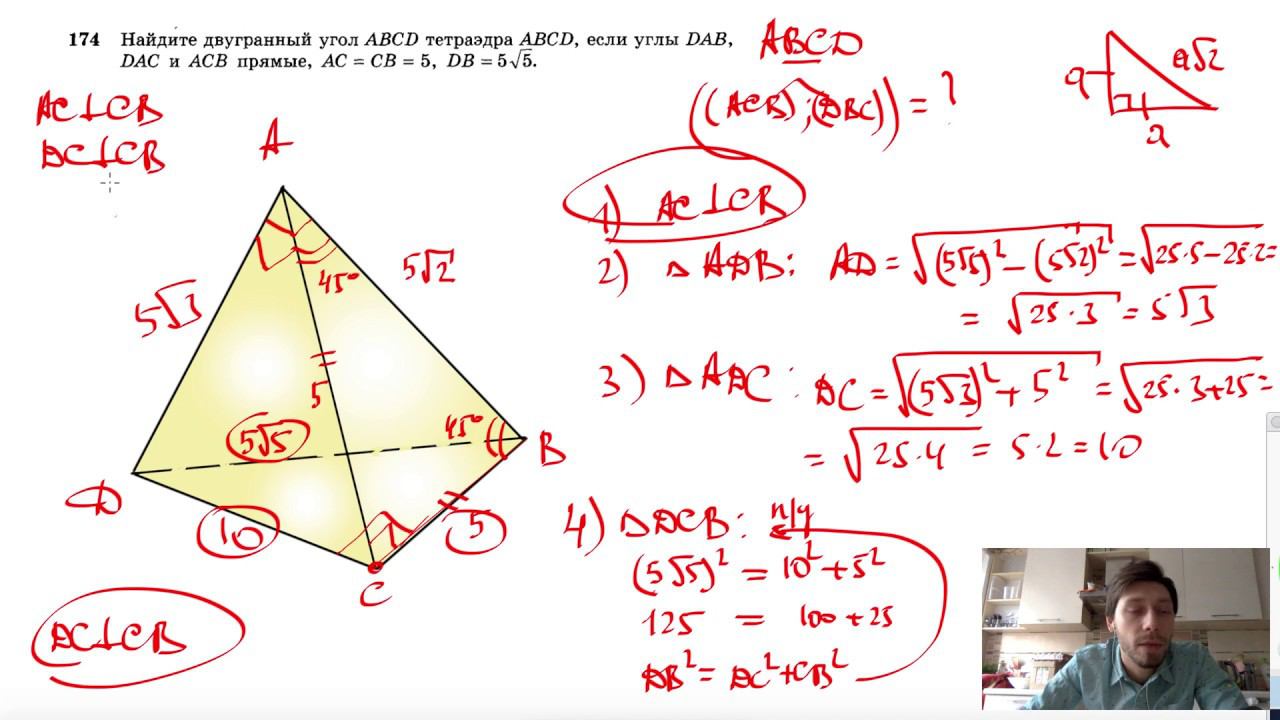 174 Найдите двугранный угол ABCD тетраэдра ABCD, если углы DAB,
DAC и ACB прямые, AC = CB = 5, DB = 5√5.
ABCD
((ACB);(DBC)) = ?
a
a√2
a
AC⊥CB
DC⊥CB
A
5√3
45°
5√2
5
5√5
45°
B
D
10
5
C
DC⊥CB
1) AC⊥CB
2) △ADB: AD = √(5√5)² − (5√2)² = √25·5−25·2 =
= √25·3 = 5√3
3) △ADC: DC = √(5√3)² + 5² = √25·3+25 =
= √25·4 = 5·2 = 10
4) △DCB: п/у
(5√5)² = 10² + 5²
125 = 100 + 25
DB² = DC² + CB²